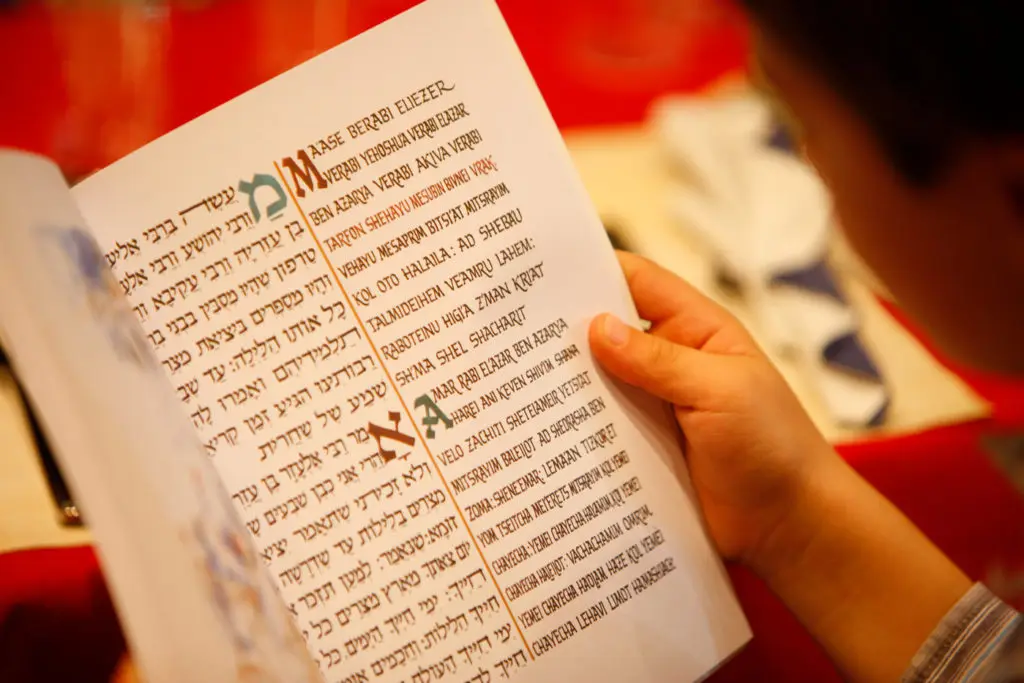 MAASE BERABI ELIEZER
VERABI YEHOSHUA VERABI ELAZAR
BEN AZARYA VERABI AKIVA VERABI
TARFON SHEHAYU MESUBIN BIVNEI VRAK
VEHAYU MESAPRIM BITSTAT MITSRAYIM
KOL OTO HALAILA: AD SHEBAU
TALMIDEIHEM VEAMRU LAHEM:
RABOTEINU HIGIA Z'MAN KRIAT
SH'MA SHEL SHACHARIT
AMAR RABI EL'AZAR BEN AZARYA
HAREI ANI KEVEN SHIVIM SHANA
VELO ZACHITI SHETEIAMEIR YETSTAT
MITSRAYIM BALEILOT AD SHEDRASHA BEN
ZOMA: SHENEEMAR: LEMAAN TIZKOR ET
YOM TSEITCHA ME'ERETS MITSRAYIM KOL YEMEI
CHAYECHA: YEMEI CHAYECHA HAYAMIM. KOL YEMEI
CHAYECHA HALEILOT: VACHACHAMIM OMRIM:
YEMEI CHAYECHA HAOLAM HAZE KOL YEMEI
CHAYECHA LEHAVI LIMOT HAMASHIACH
מעשה ברבי
ורבי יהושע ורבי
בן עזריה ורבי עקיבא
טרפון שהיו מסבין בבני
והיו מספרים ביציאת
כל אותו הלילה: עד
תלמידיהם ואמרו
רבותינו הגיע זמן
שמע של שחרית
אמר רבי אלעזר בן
הרי אני כבן שבעים
ולא זכיתי שתאמר
מצרים בלילות עד שדרשה
זומא: שנאמר: למען
יום צאתך מארץ מצרים כל
חייך: ימי חייך הימים כל
חייך הלילות וחכמים
ימי חייך העולם
חייך